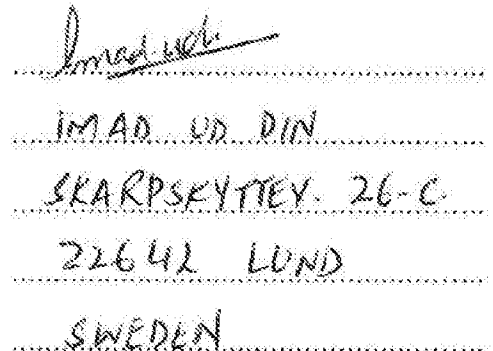 Imad.ud.
IMAD UD DIN
SKARPSKYTTEV. 26-C
22642 LUND
SWEDEN